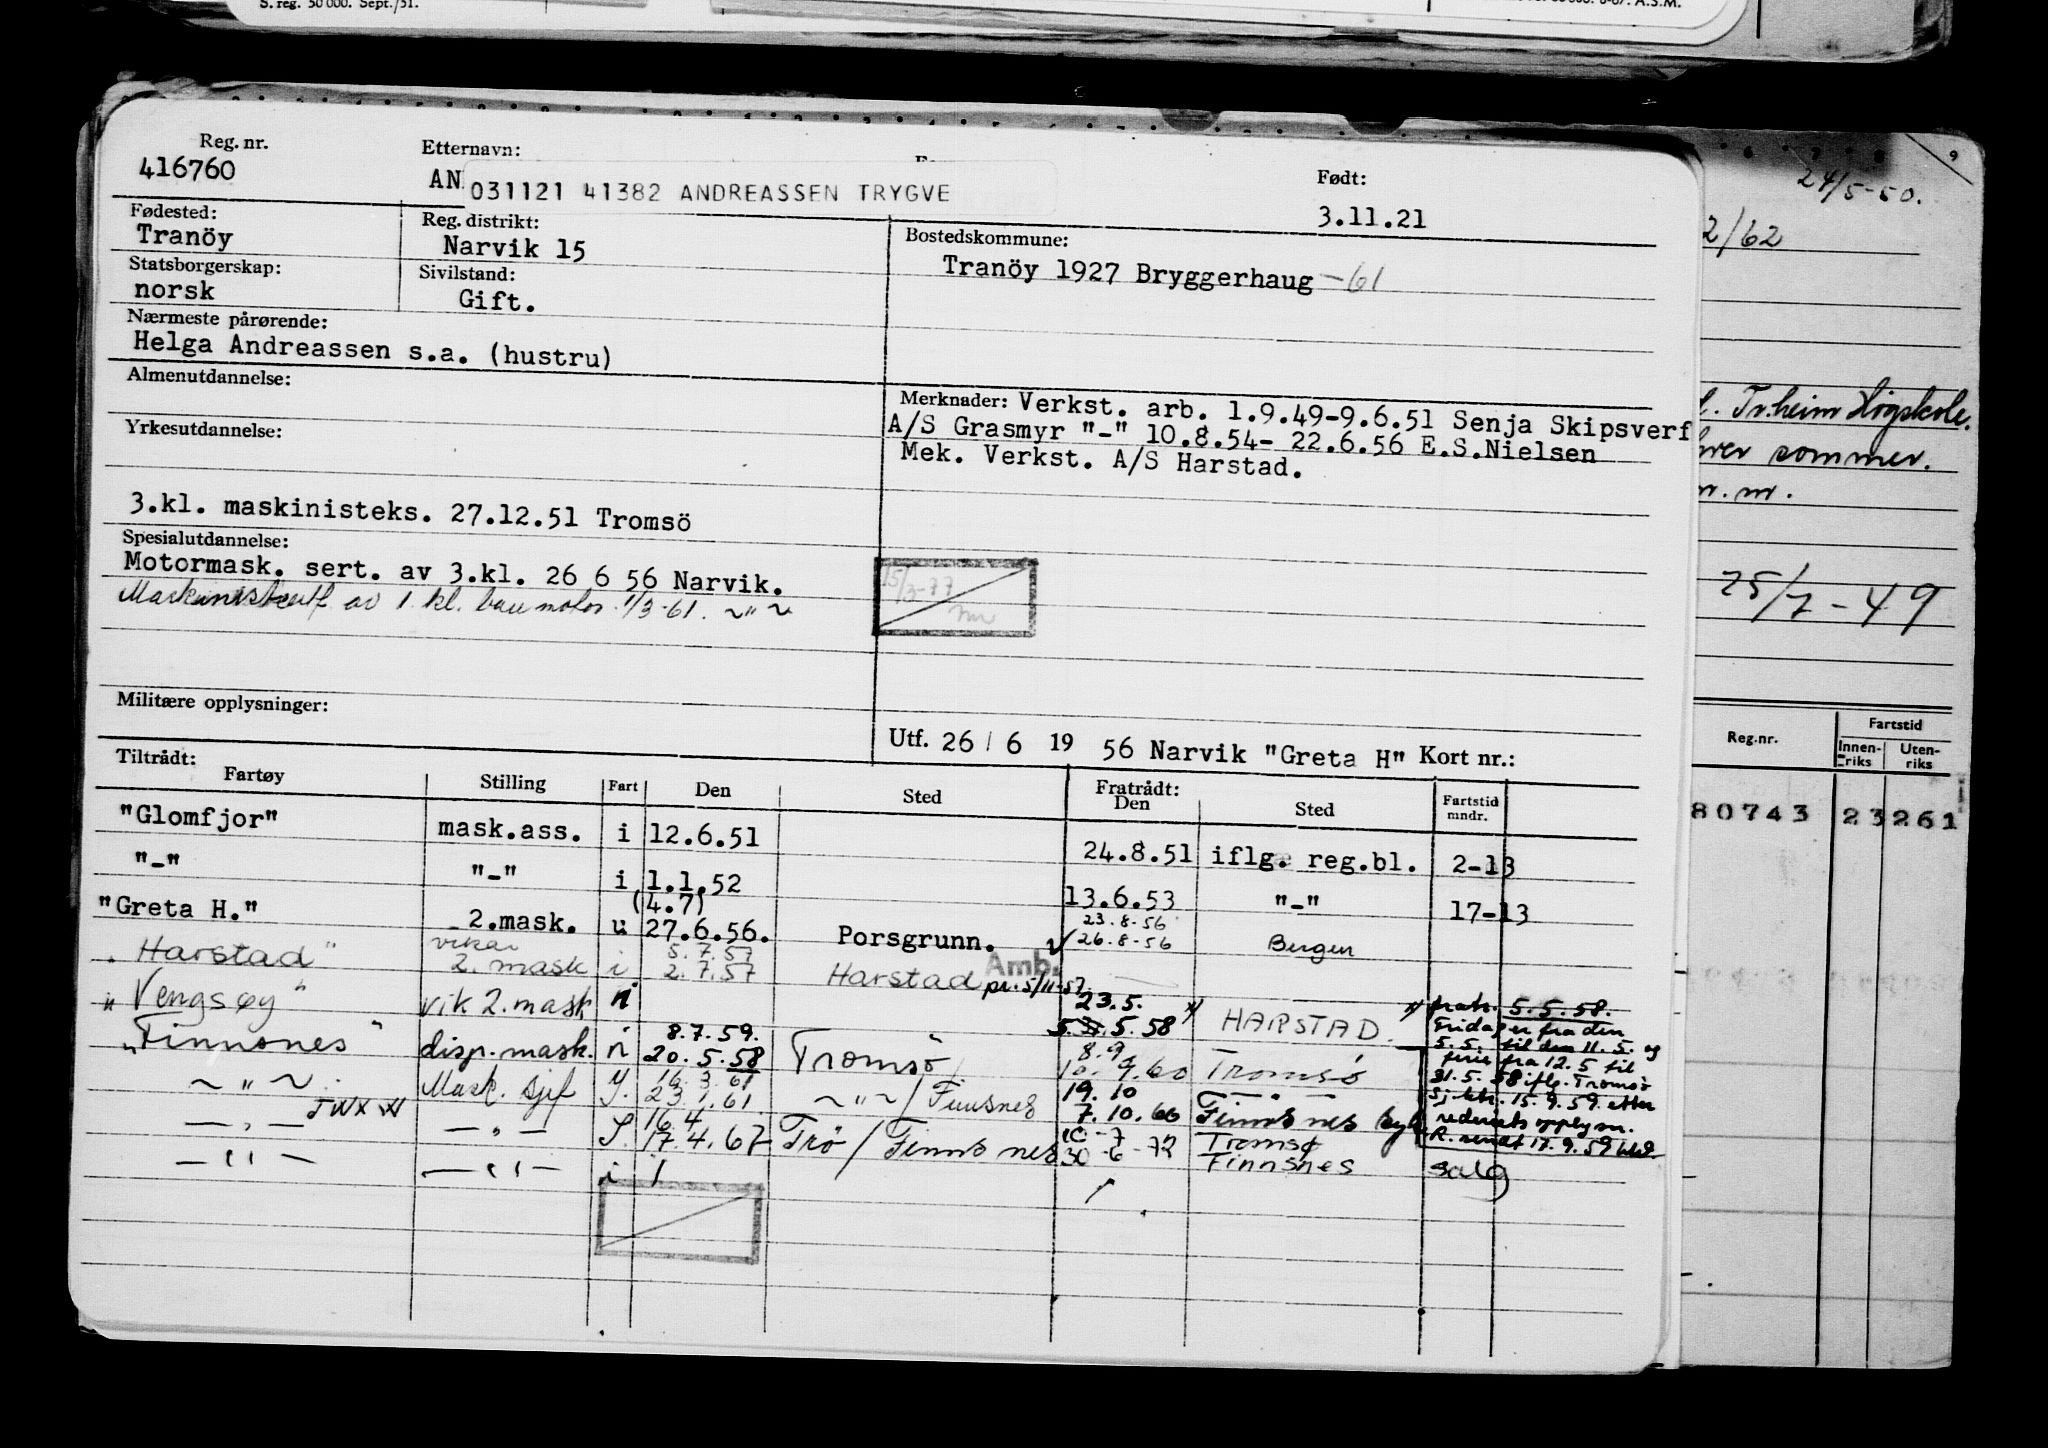 S. reg. 50 000. Sept./51.
A.S.M.
Reg. nr.
416760
Etternavn:
AN
031121 41382 ANDREASSEN TRYGVE
Født:
3.11.21
Fødested:
Tranöy
Reg. distrikt:
Narvik 15
Bostedskommune:
Tranöy 1927 Bryggerhaug -61
Statsborgerskap:
norsk
Sivilstand:
Gift.
Nærmeste pårørende:
Helga Andreassen s.a. (hustru)
Almenutdannelse:
Merknader: Verkst. arb. 1.9.49-9.6.51 Senja Skipsverf
A/S Grasmyr "-" 10.8.54- 22.6.56 E.S.Nielsen
Mek. Verkst. A/S Harstad.
Yrkesutdannelse:
3.kl. maskinisteks. 27.12.51 Tromsö
Spesialutdannelse:
Motormask. sert. av 3.kl. 26 6 56 Narvik.
av 1. kl. bare motor 1/3-61. ~"~
15/3-77
Militære opplysninger:
Utf. 26 / 6 19 56 Narvik "Greta H" Kort nr.:
Tiltrådt:
Fartøy Stilling Fart Den Sted Fratrådt: Den Sted Fartstid mndr.
"Glomfjor" mask.ass. i 12.6.51 24.8.51 iflg. reg.bl. 2-13
"-" "-" i 1.1.52 13.6.53 "-" 17-13
(4.7) 23.8-56
"Greta H." 2.mask. u 27.6.56. Porsgrunn. 26.8-56 Bergen
vikar 5.7.57
"Harstad" 2. mask i 2.7.57 Harstad Amb. pr. 5/11-57.
"Vengsøy" vik 2. mask i 23.5. 5.5.58 HARSTAD
fratr. 5.5.58.
Fridager fra den
5.5. til den 11.5. og
ferie fra 12.5 til
31.5.58 iflg. Tromsö
Sj. ktr. 15.9.59. etter
rederiets opplysn.
8.7.59. 8.9
"Finnsnes" disp. mask. i 20.5.58 Tromsö 10.9.60 Tromsö
16.3.61 19.10
~"~ Mask. sjef 23.1.61 ~"~ / Finnsnes 7.10.66 Finnsnes
16.4 10-7
-"- -"- 17.4.67 Trö / Finnsnes 30-6-72 Tromsø
Finnsnes salg
-"- -"- i 1
9
24/5-50.
2/62
Tr.heim Högskole.
hver sommer.
m. m.
25/7-49
Reg.nr. Fartstid
Innen-riks Uten-riks
80743 23 261